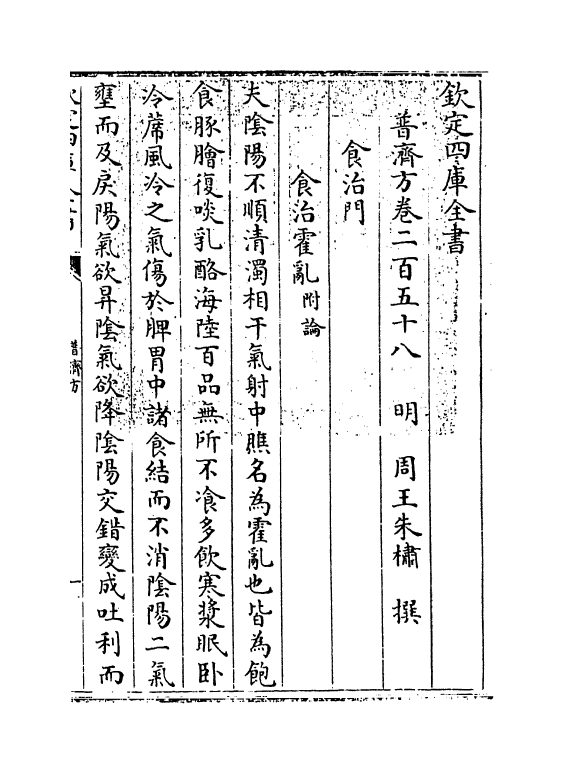 欽定四庫全書
普濟方卷二百五十八　明　周王朱橚　撰
食治門
食治霍亂附論
夫陰陽不順清濁相干氣射中膲名為霍亂也皆為飽
食豚膾復啖乳酪海陸百品無所不飡多飲寒漿眠卧
冷蓆風冷之氣傷於脾胃中諸食結而不消陰陽二氣
壅而及戾陽氣欲昇陰氣欲降陰陽交錯變成吐利而
普濟方
一